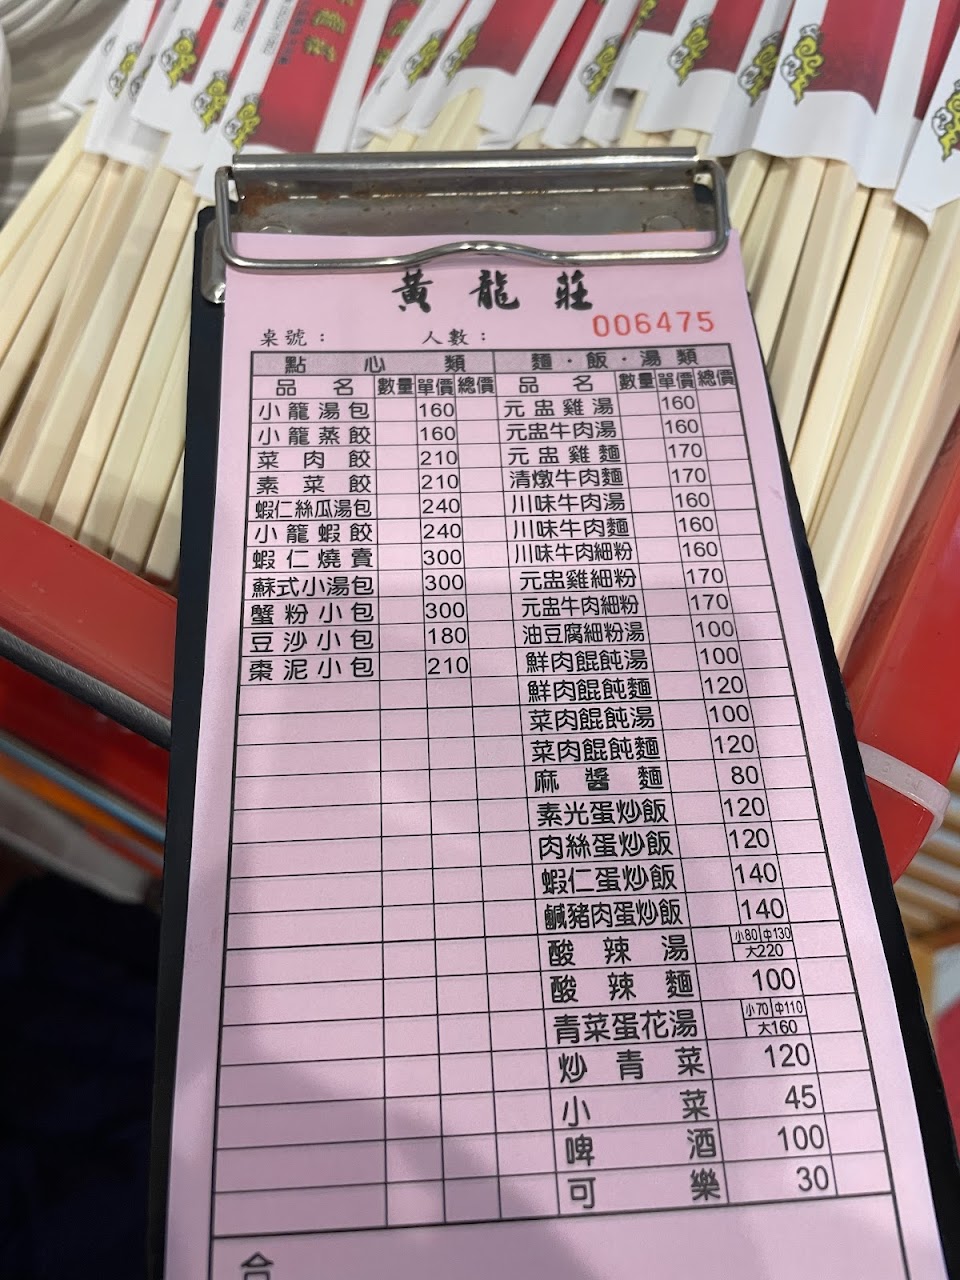 黃龍莊
006475
桌號： 人數：
點心類 麵・飯・湯類
品名 數量 單價 總價 品名 數量 單價 總價
小籠湯包 160 元盅雞湯 160
小籠蒸餃 160 元盅牛肉湯 160
菜肉餃 210 元盅雞麵 170
素菜餃 210 清燉牛肉麵 170
蝦仁絲瓜湯包 240 川味牛肉湯 160
小籠蝦餃 240 川味牛肉麵 160
蝦仁燒賣 300 川味牛肉細粉 160
蘇式小湯包 300 元盅雞細粉 170
蟹粉小包 300 元盅牛肉細粉 170
豆沙小包 180 油豆腐細粉湯 100
棗泥小包 210 鮮肉餛飩湯 100
鮮肉餛飩麵 120
菜肉餛飩湯 100
菜肉餛飩麵 120
麻醬麵 80
素光蛋炒飯 120
肉絲蛋炒飯 120
蝦仁蛋炒飯 140
鹹豬肉蛋炒飯 140
酸辣湯 小80 中130 大220
酸辣麵 100
青菜蛋花湯 小70 中110 大160
炒青菜 120
小菜 45
啤酒 100
可樂 30
合